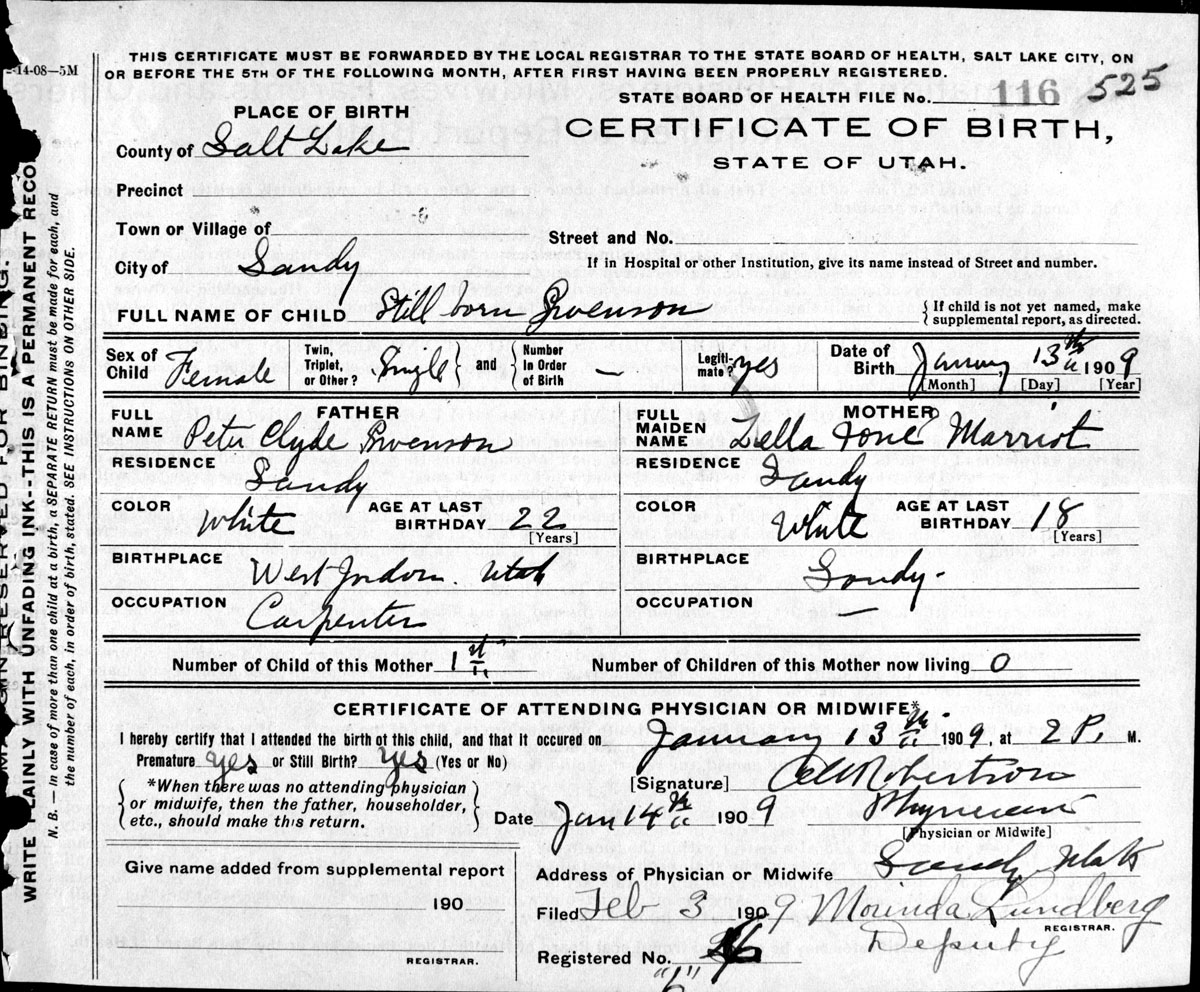 THIS CERTIFICATE MUST BE FORWARDED BY THE LOCAL REGISTRAR TO THE STATE BOARD OF HEALTH, SALT LAKE CITY, ON
OR BEFORE THE 5TH OF THE FOLLOWING MONTH, AFTER FIRST HAVING BEEN PROPERLY REGISTERED.
14-08—5M
STATE BOARD OF HEALTH FILE No. 116 525
PLACE OF BIRTH
CERTIFICATE OF BIRTH,
STATE OF UTAH.
County of Salt Lake
Precinct
Town or Village of
Street and No.
City of Sandy
If in Hospital or other Institution, give its name instead of Street and number.
FULL NAME OF CHILD Still born Swenson
{ If child is not yet named, make
supplemental report, as directed.
Sex of Child Female
Twin, Triplet, or Other? Single } and { Number In Order of Birth —
Legiti-mate? yes
Date of Birth January 13th 1909
[Month] [Day] [Year]
FATHER
FULL NAME Peter Clyde Swenson
RESIDENCE Sandy
COLOR White
AGE AT LAST BIRTHDAY 22
[Years]
BIRTHPLACE West Jordan. Utah
OCCUPATION Carpenter
MOTHER
FULL MAIDEN NAME Della Ione Marriot
RESIDENCE Sandy
COLOR White
AGE AT LAST BIRTHDAY 18
[Years]
BIRTHPLACE Sandy-
OCCUPATION —
Number of Child of this Mother 1st
Number of Children of this Mother now living 0
CERTIFICATE OF ATTENDING PHYSICIAN OR MIDWIFE*
I hereby certify that I attended the birth of this child, and that it occured on January 13th 1909, at 2 P. M.
Premature yes or Still Birth? yes (Yes or No)
[Signature] Robertson
{ *When there was no attending physician
or midwife, then the father, householder,
etc., should make this return. }
Date Jan 14th 1909
Physician
[Physician or Midwife]
Address of Physician or Midwife Sandy Utah
Give name added from supplemental report
190
REGISTRAR.
Filed Feb 3 1909 Morinda Lundberg
REGISTRAR.
Deputy
Registered No.
"6"
MARGIN RESERVED FOR BINDING.
WRITE PLAINLY WITH UNFADING INK-THIS IS A PERMANENT RECO
N. B. — In case of more than one child at a birth, a SEPARATE RETURN must be made for each, and
the number of each, in order of birth, stated. SEE INSTRUCTIONS ON OTHER SIDE.